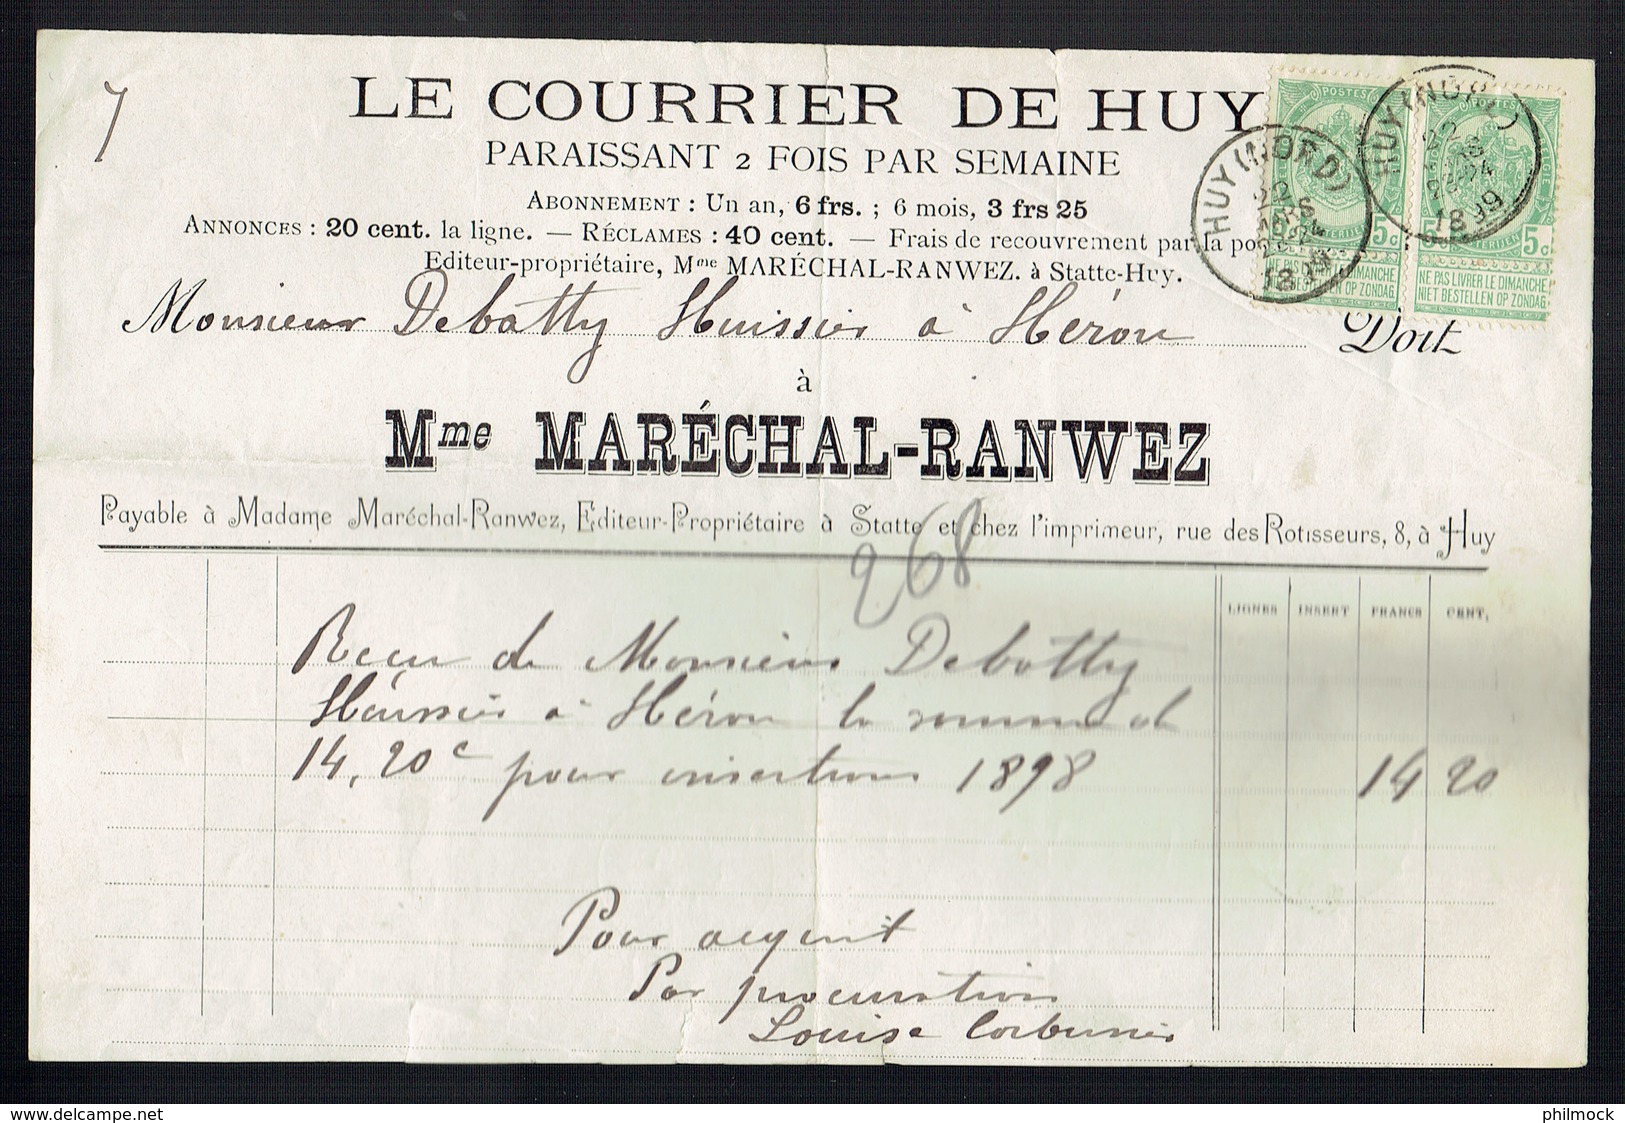 7
LE COURRIER DE HUY
PARAISSANT 2 FOIS PAR SEMAINE
ABONNEMENT : Un an, 6 frs. ; 6 mois, 3 frs 25
ANNONCES : 20 cent. la ligne. — RÉCLAMES : 40 cent. — Frais de recouvrement par la poste
Editeur-propriétaire, Mme MARÉCHAL-RANWEZ. à Statte-Huy.
POSTES
5c
NE PAS LIVRER LE DIMANCHE
NIET BESTELLEN OP ZONDAG
HUY (NORD)
22
MARS
1899
POSTES
5c
NE PAS LIVRER LE DIMANCHE
NIET BESTELLEN OP ZONDAG
HUY (NORD)
22
1899
Monsieur Debatty Huissier à Héron Doit
à
Mme MARÉCHAL-RANWEZ
Payable à Madame Maréchal-Ranwez, Editeur-Propriétaire à Statte et chez l'imprimeur, rue des Rotisseurs, 8, à Huy
268
LIGNES INSERT FRANCS CENT.
Reçu de Monsieur Debatty
Huissier à Héron la somme de
14,20c pour insertions 1898 14 20
Pour acquit
Par procuration
Louise
philmock